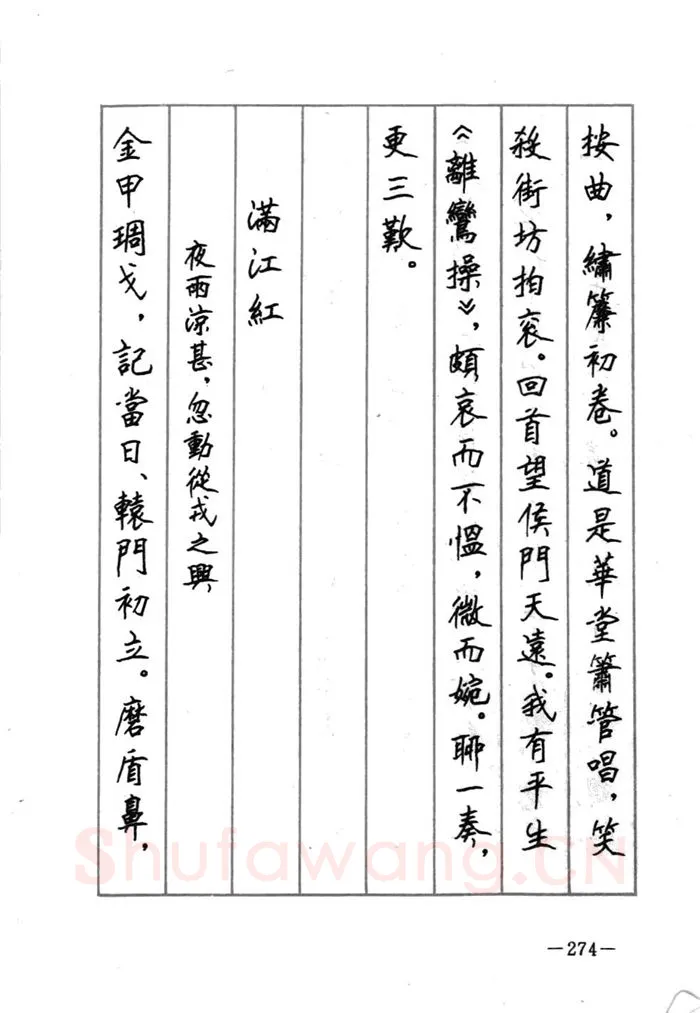 按曲，繡簾初卷。道是華堂簫管唱，笑
殺街坊拍衮。回首望侯門天遠。我有平生
《離鸞操》，頗哀而不慍，微而婉。聊一奏，
更三歎。
滿江紅
夜雨涼甚，忽動從戎之興
金甲琱戈，記當日、轅門初立。磨盾鼻，
Shufawang.CN
—274—